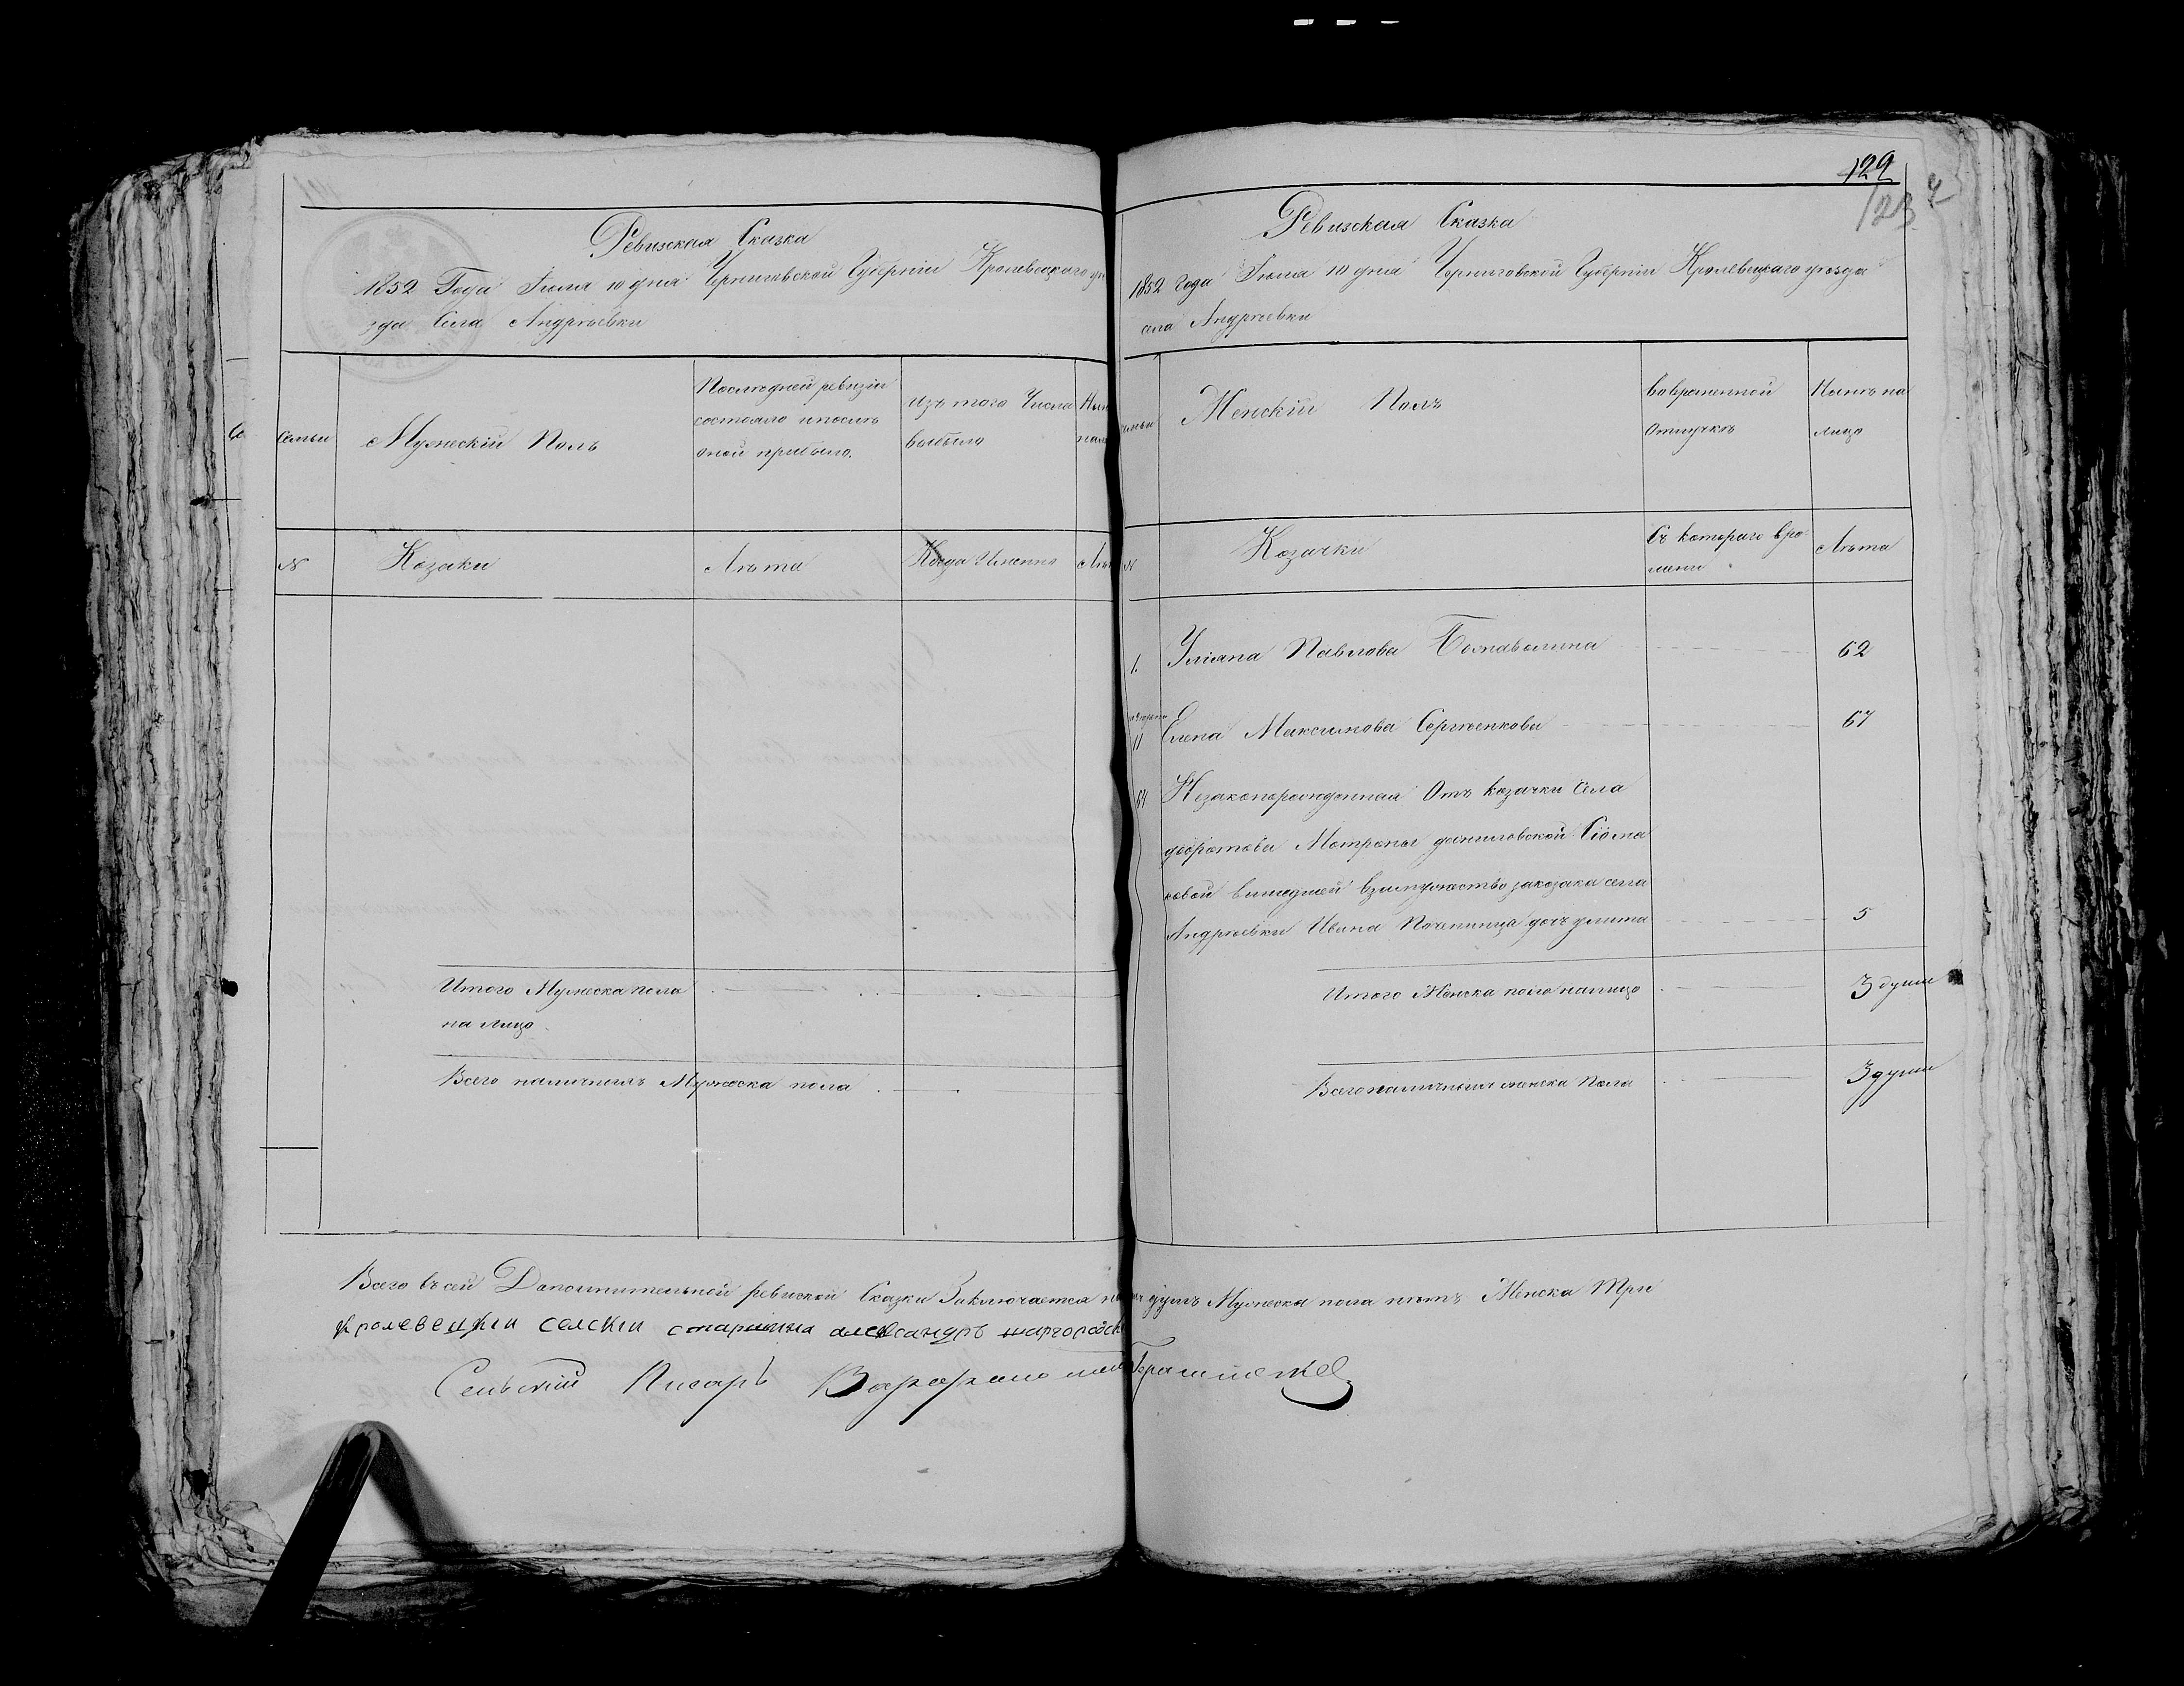 Ревизская Сказка
1852 Года Июля 10 дня Черниговской Губернии Кролевецкого уѣ
зда Села Андрѣевки
Семьи
Мужескій Полъ
Последней ревизіи
состояло и послѣ
оной прибыло.
Изъ того Числа
выбыло
Нын
нали
№
Козаки
Лѣта
Когда Именно
Лѣт
Итого Мужеска пола
на лицо
Всего наличныхъ Мужеска пола
129
123
Ревизская Сказка
1852 Года Июля 10 дня Черниговской Губерніи Кролевецкаго уѣзда
села Андрѣевки
семьи
Женскій Полъ
Вовременной
Отлучкѣ
Нынѣ на
лицо
№
Козачки
Съ котораго вре
мени
Лѣта
1. Уліяна Павлова 62
11 Елена Максимова Сергѣенкова 67
64 Незаконорожденная Отъ козачки Села
Мотроны даниловской
вишедшей взамужество закозака села
Андрѣевки Ивана дочъ улита 5
Итого Женска пола налицо 3 души
Всего наличныхъ женска Пола 3 души
Всего въ сей Дополнительной ревиской Сказки Заключается душъ Мужеска пола нѣтъ Женска Три
Кролевецкіи селскіи старшина александръ
Сельскій Писаръ